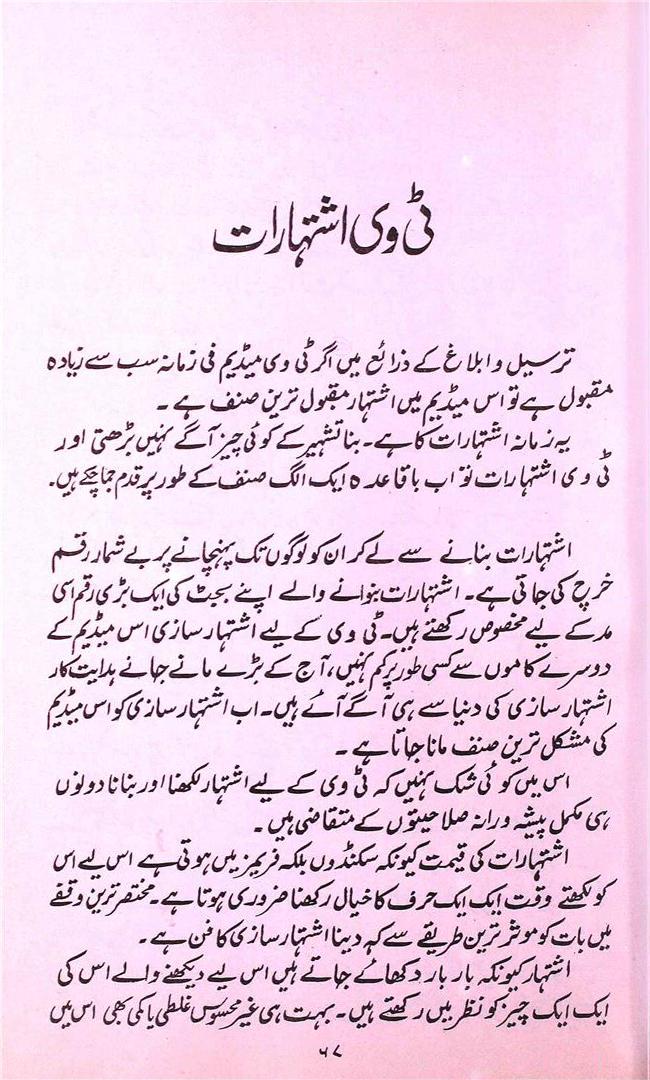 ٹی وی اشتہارات
ترسیل و ابلاغ کے ذرائع میں اگر ٹی وی میڈیم فی زمانہ سب سے زیادہ
مقبول ہے تو اس میڈیم میں اشتہار مقبول ترین صنف ہے ۔
یہ زمانہ اشتہارات کا ہے۔ بنا تشہیر کے کوئی چیز آگے نہیں بڑھتی اور
ٹی وی اشتہارات تو اب باقاعدہ ایک الگ صنف کے طور پر قدم جما چکے ہیں۔
اشتہارات بنانے سے لے کر ان کو لوگوں تک پہنچانے پر بے شمار رقم
خرچ کی جاتی ہے۔ اشتہارات بنوانے والے اپنے بجٹ کی ایک بڑی رقم اسی
مد کے لیے مخصوص رکھتے ہیں۔ ٹی وی کے لیے اشتہار سازی اس میڈیم کے
دوسرے کاموں سے کسی طور پر کم نہیں، آج کے بڑے مانے جانے ہدایت کار
اشتہار سازی کی دنیا سے ہی آگے آئے ہیں۔ اب اشتہار سازی کو اس میڈیم
کی مشکل ترین صنف مانا جاتا ہے ۔
اس میں کوئی شک نہیں کہ ٹی وی کے لیے اشتہار لکھنا اور بنانا دونوں
ہی مکمل پیشہ ورانہ صلاحیتوں کے متقاضی ہیں ۔
اشتہارات کی قیمت کیونکہ سکنڈوں بلکہ فریمز میں ہوتی ہے اس لیے اس
کو لکھتے وقت ایک ایک حرف کا خیال رکھنا ضروری ہوتا ہے۔ مختصر ترین وقفے
میں بات کو موثر ترین طریقے سے کہہ دینا اشتہار سازی کا فن ہے ۔
اشتہار کیونکہ بار بار دکھائے جاتے ہیں اس لیے دیکھنے والے اس کی
ایک ایک چیز کو نظر میں رکھتے ہیں۔ بہت ہی غیر محسوس غلطی یا کمی بھی اس میں
۶۷